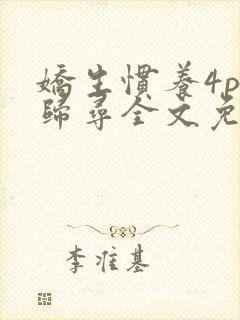 嬌生慣養4p
歸尋全文免
李准基